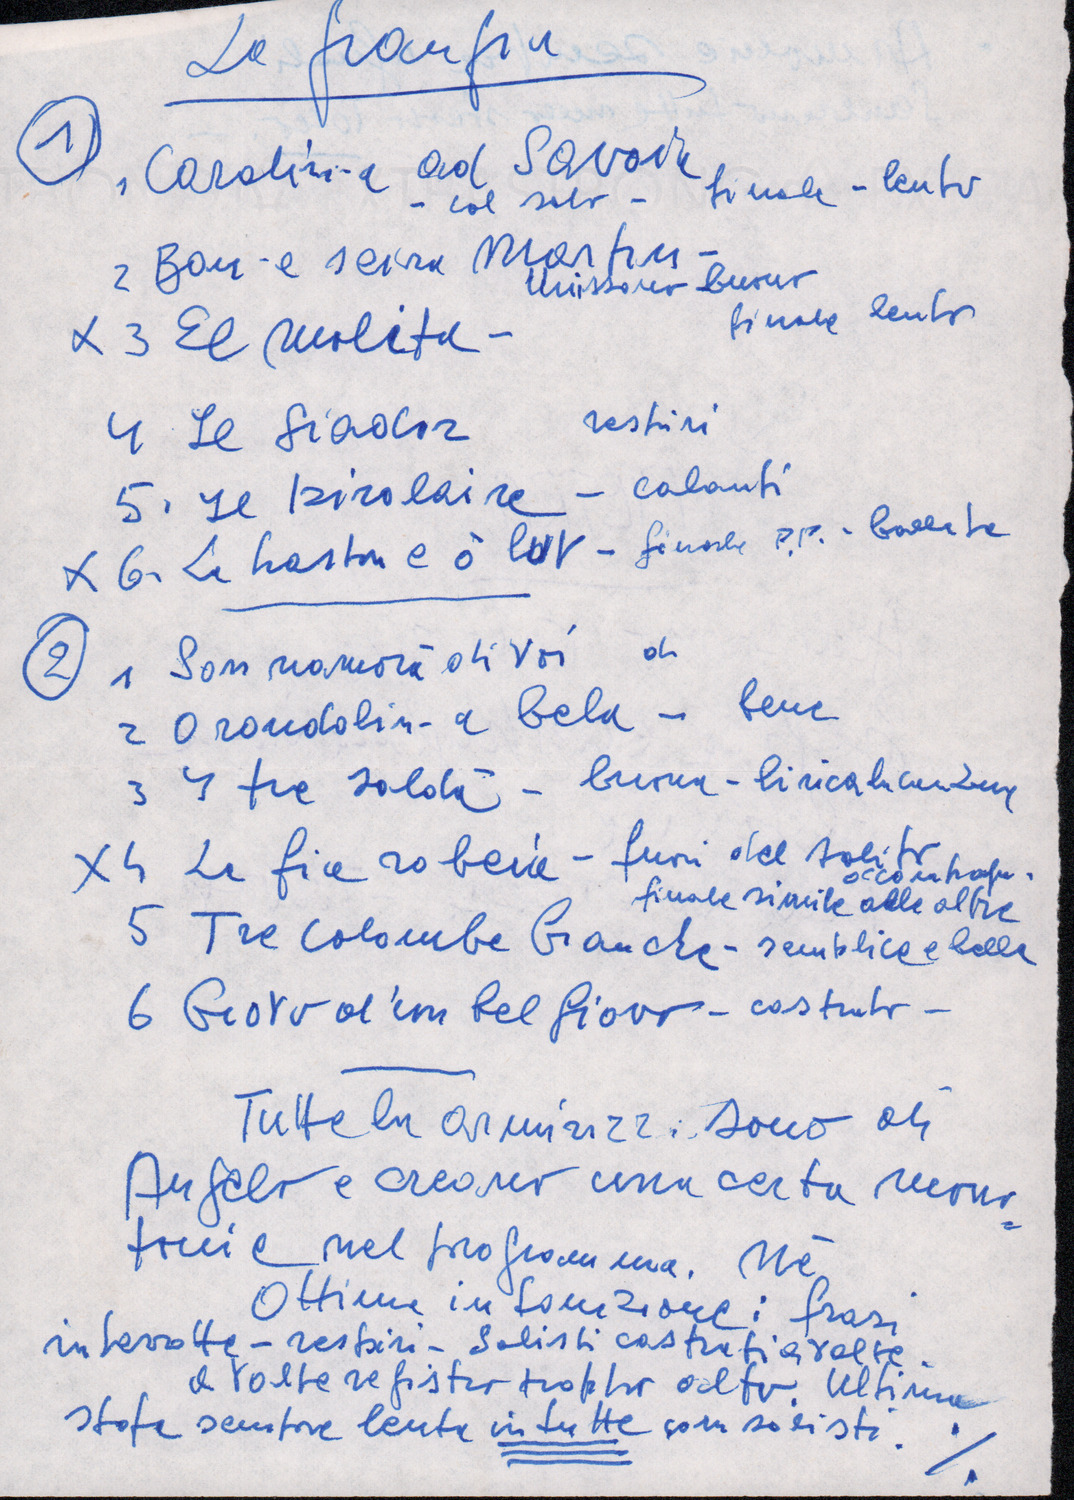 La grangia
1
1 Carolin-a ed Savoia finale - lento
- col solo -
2 Bon-e seira Martin -
Unissono buono
X 3 El molita - finale lento
4 Le Siador respiri
5. Le birolaire - calanti
X 6. La e ö luv - finale p.p. - ballata
2 1 Son namorà di voi di
2 O rondolin-a bela - bene
3 I tre soldà - buona - lirica la canzone
X 4 La fia robeia - fuori del solito
o contrapp.
finale simile alle altre
5 Tre colombe bianche - semplice e bella
6 Giovo d'un bel giovo - castrato -
Tutte le armonizz. sono di
Angelo e creano una certa mono-
tonia nel programma. Né
Ottima intonazione; frasi
interrotte - respiri - Solisti castrati a volte
a volte registro troppo alto. Ultima
strofa sempre lenta in tutte con solisti.
./.